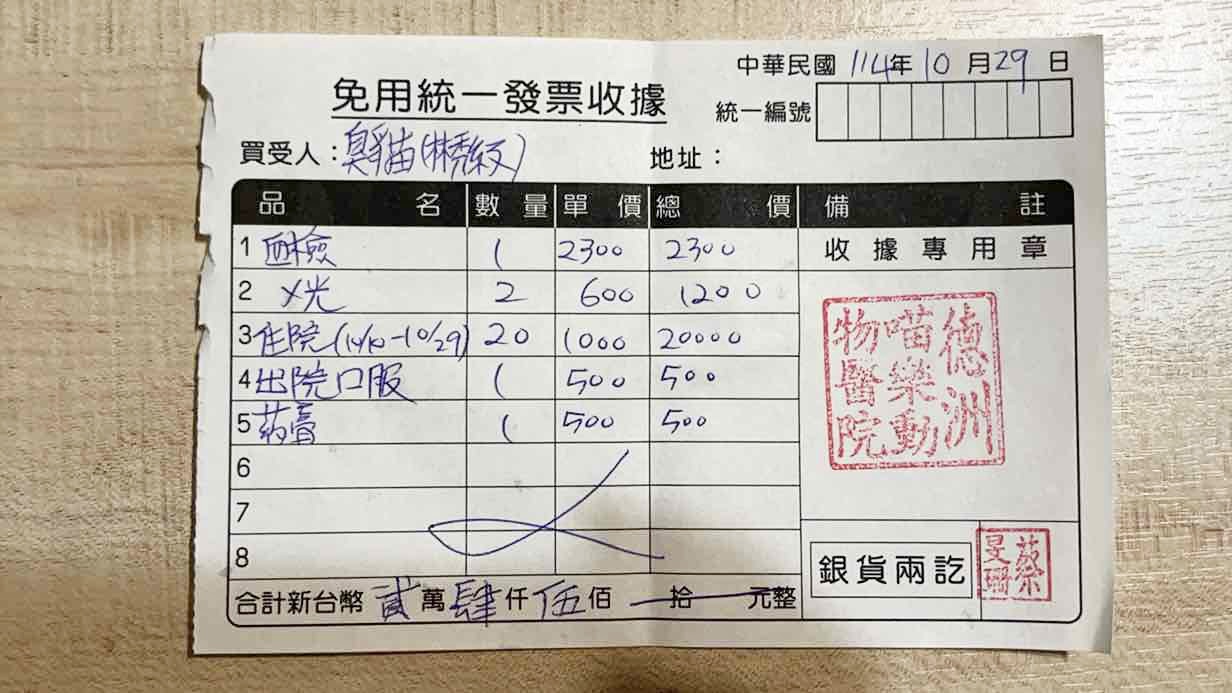 中華民國 114年 10 月 29 日
免用統一發票收據
統一編號
買受人：臭貓(林秀紋)
地址：
品名 數量 單價 總價 備註
1 血檢 1 2300 2300
收據專用章
2 X光 2 600 1200
3 住院(10/10-10/29) 20 1000 20000
4 出院口服 1 500 500
5 药膏 1 500 500
6
7
8
德洲喵樂動物醫院
銀貨兩訖
蔡旻珊
合計新台幣 貳萬肆仟伍佰 拾 元整